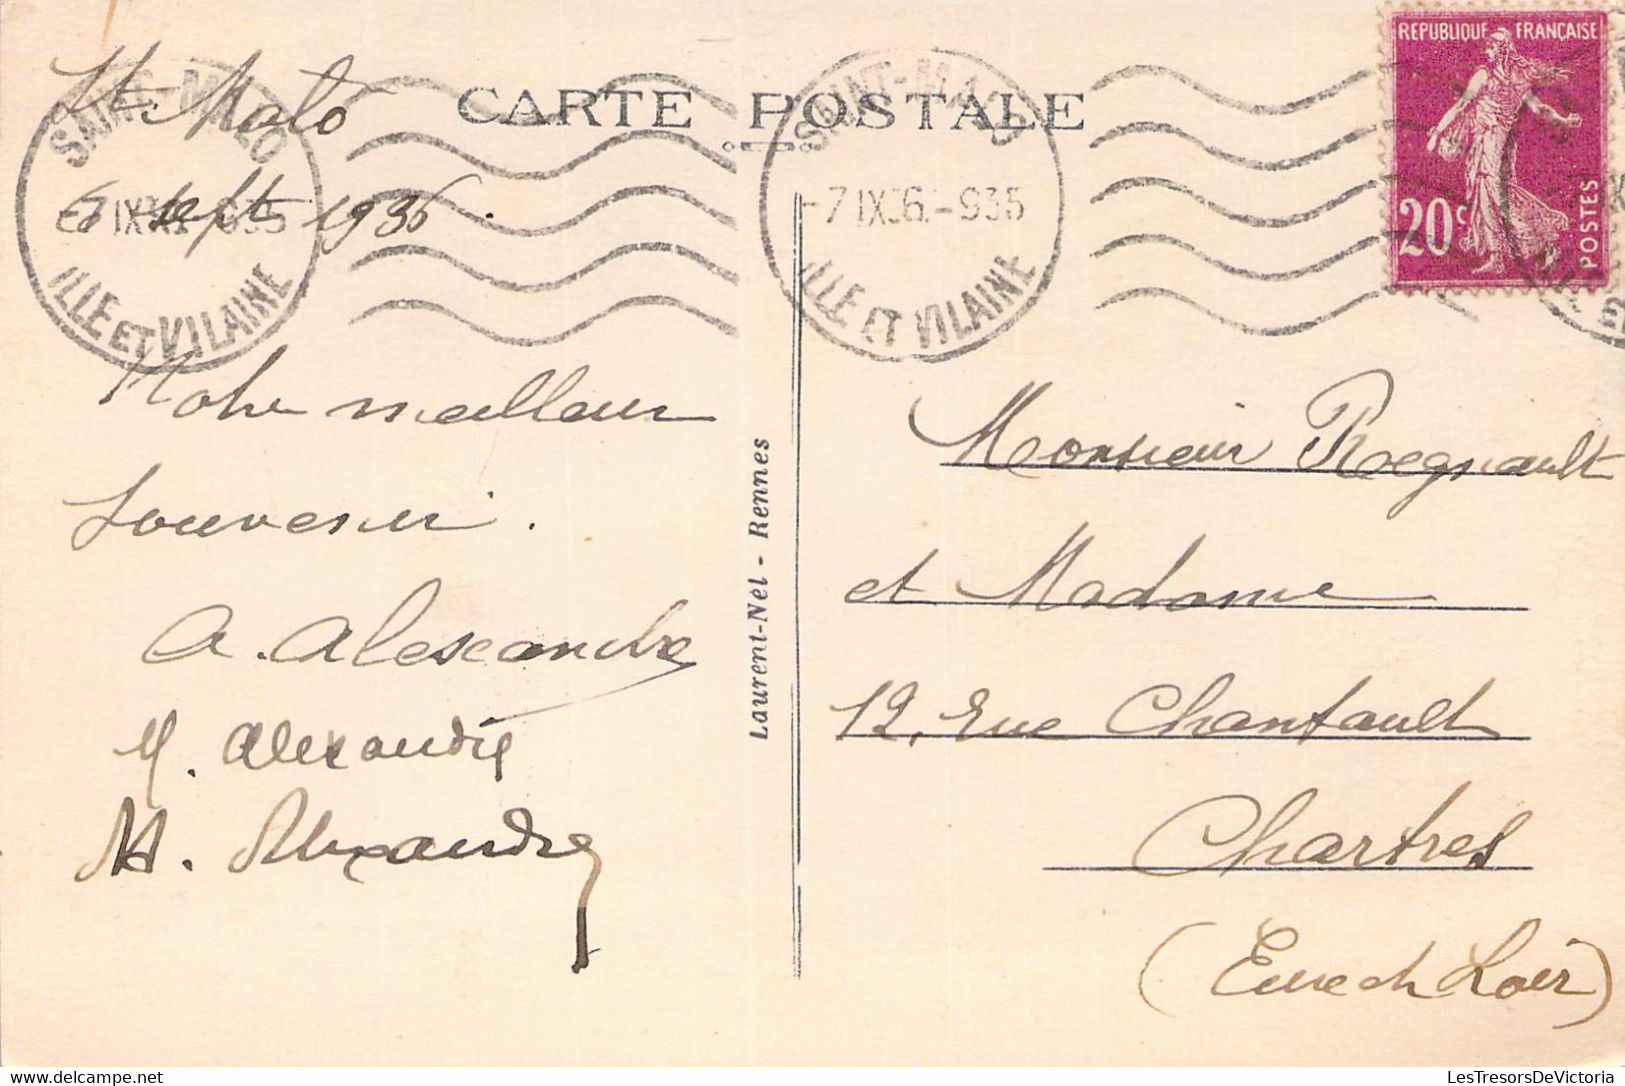 St. Malo
6 sept 1936.
SAINT-MALO
ILLE ET VILAINE
CARTE POSTALE
SAINT-MALO
-7 IX 36 -935
ILLE ET VILAINE
REPUBLIQUE FRANÇAISE
20c
POSTES
Notre meilleur
souvenir.
A. Alexandre
M. Alexandre
M. Alexandre
Laurent-Nel - Rennes
Monsieur Regnault
et Madame
12, rue Chantault
Chartres
(Eure et Loir)
LesTresorsDeVictoria